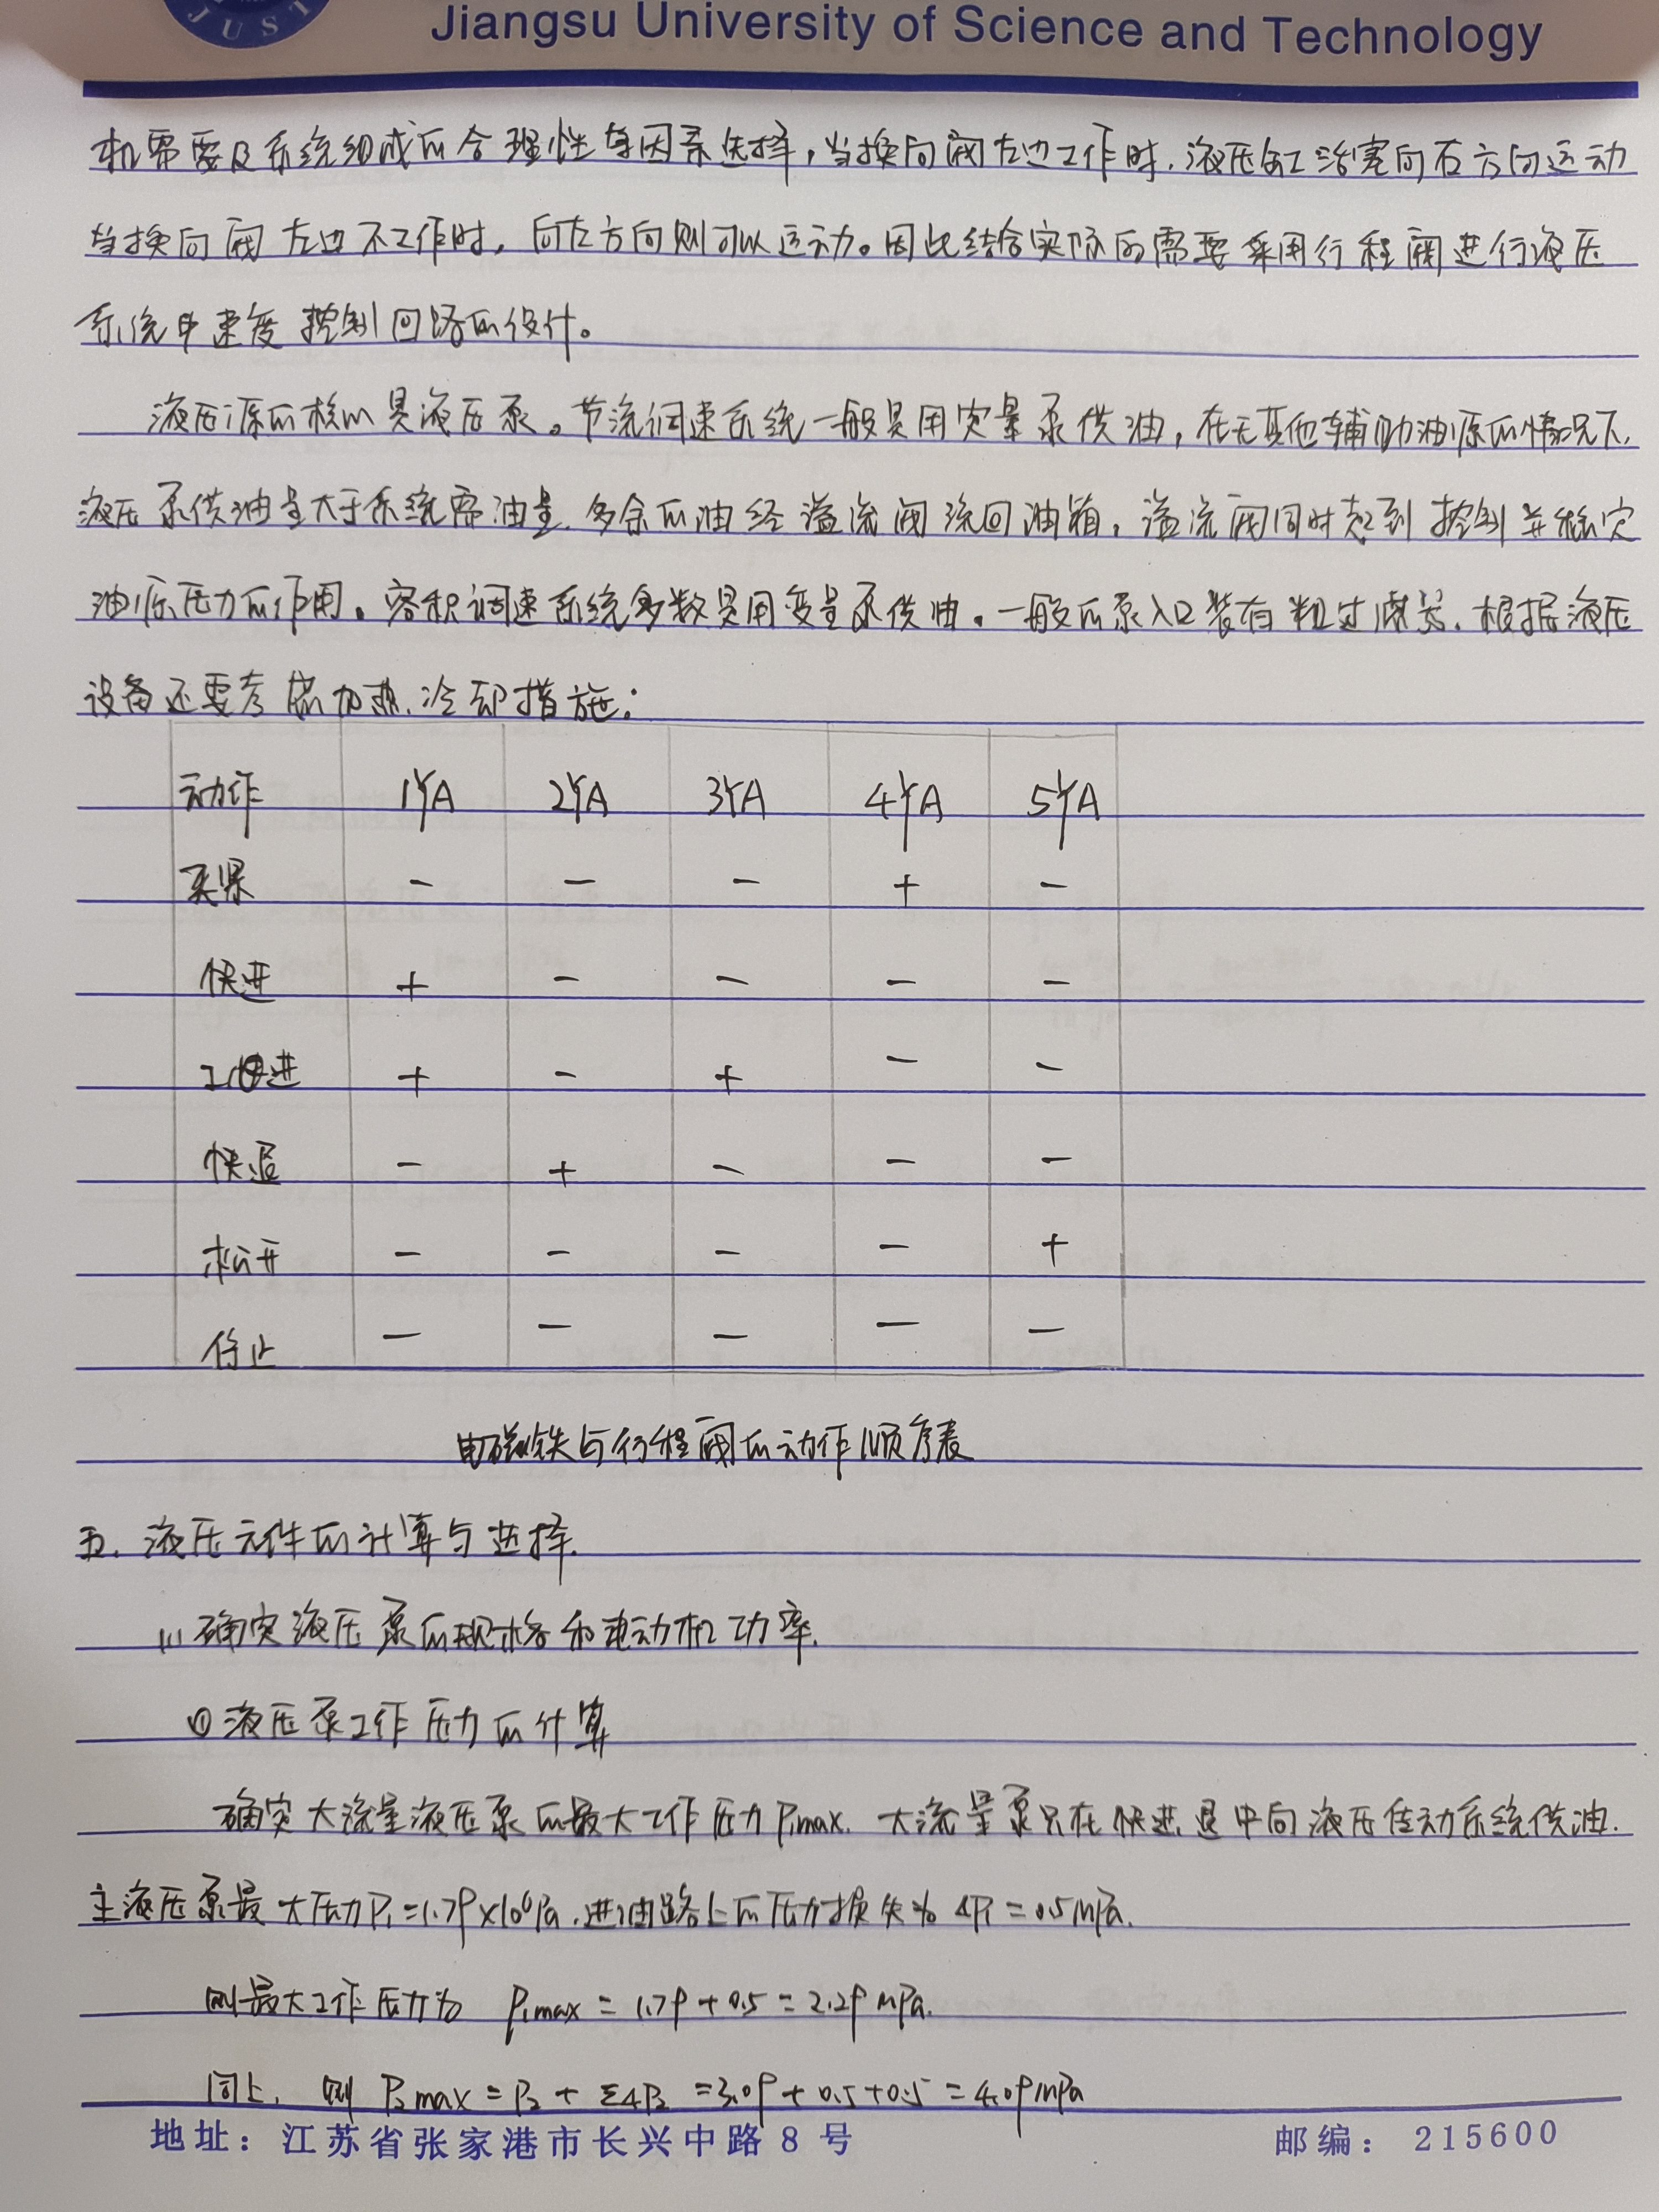 JUST
Jiangsu University of Science and Technology
机需要及系统组成的合理性等因素选择,当换向阀左边工作时.液压缸活塞向右方向运动
当换向阀左边不工作时,向左方向则可以运动。因此结合实际的需要采用行程阀进行液压
系统中速度控制回路的设计。
液压源的核心是液压泵。节流调速系统一般是用定量泵供油,在无其他辅助油源的情况下,
液压泵供油量大于系统需油量.多余的油经溢流阀流回油箱,溢流阀同时起到控制并稳定
油源压力的作用。容积调速系统多数是用变量泵供油。一般的泵入口装有粗过滤器.根据液压
设备还要考虑加热.冷却措施:
动作 1YA 2YA 3YA 4YA 5YA
夹紧 - - - + -
快进 + - - - -
工进 + - + - -
快退 - + - - -
松开 - - - - +
停止 - - - - -
电磁铁与行程阀的动作顺序表
五.液压元件的计算与选择.
(1)确定液压泵的规格和电动机功率.
①液压泵工作压力的计算
确定大流量液压泵的最大工作压力P₁max.大流量泵只在快进退中向液压传动系统供油.
主液压泵最大压力P₁=1.79×10⁶Pa.进油路上的压力损失为ΔP₁=0.5MPa.
则最大工作压力为 P₁max=1.79+0.5=2.29MPa.
同上.则 P₂max=P₂+ΣΔP₂=3.09+0.5+0.5=4.09MPa
地址:江苏省张家港市长兴中路8号 邮编:215600